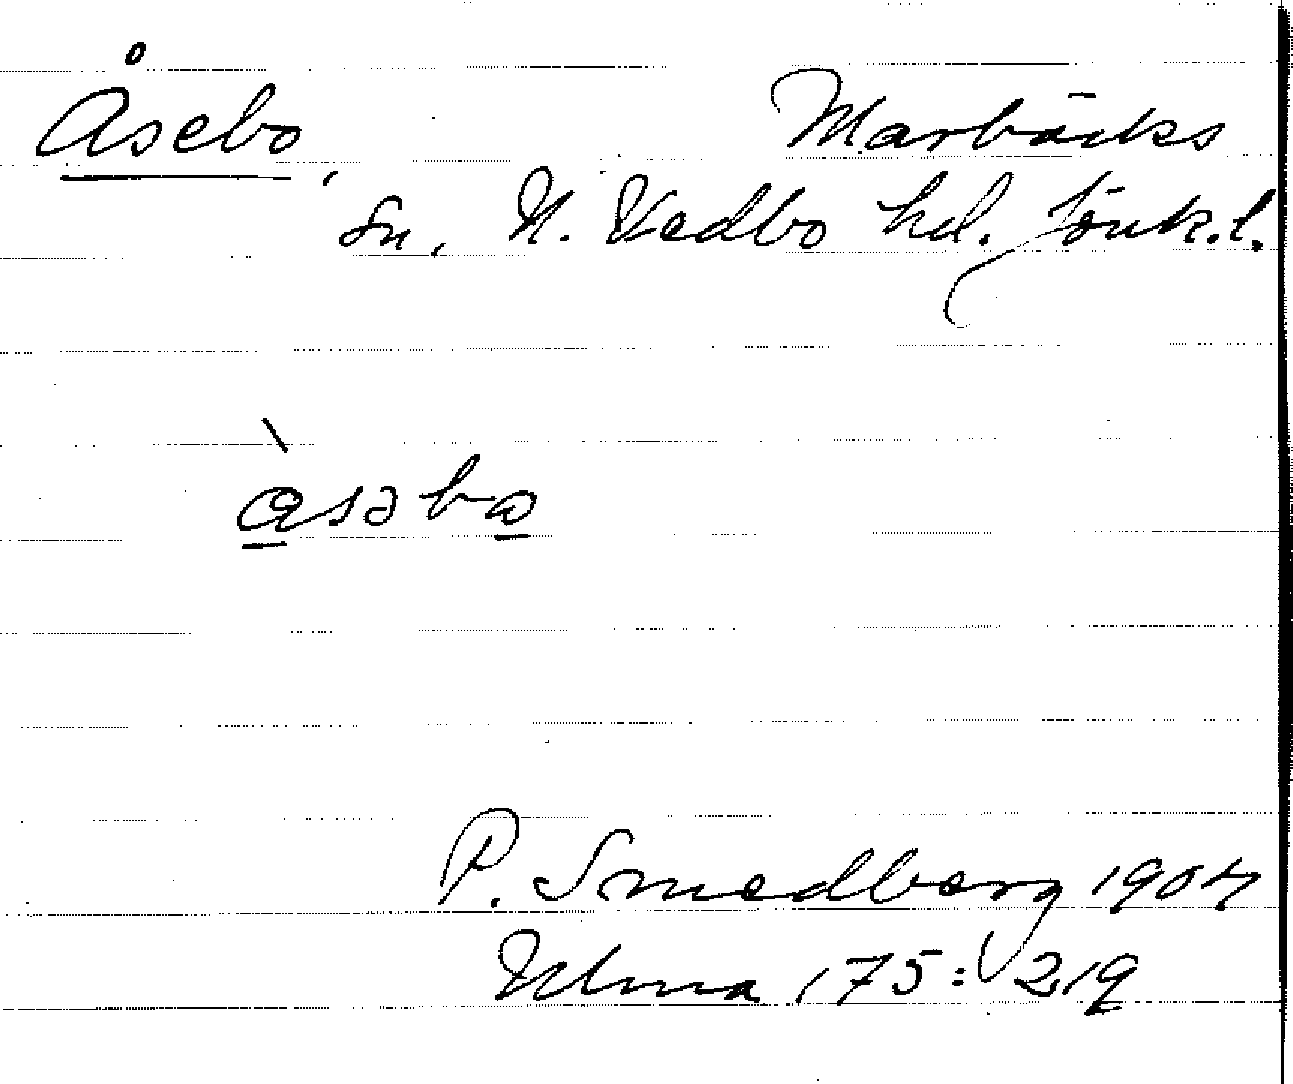 Åsebo, Marbäcks
sn, N. Vedbo hd. Jönk.l.
åsəbo
P. Smedberg 1904
Ulma 175: 219